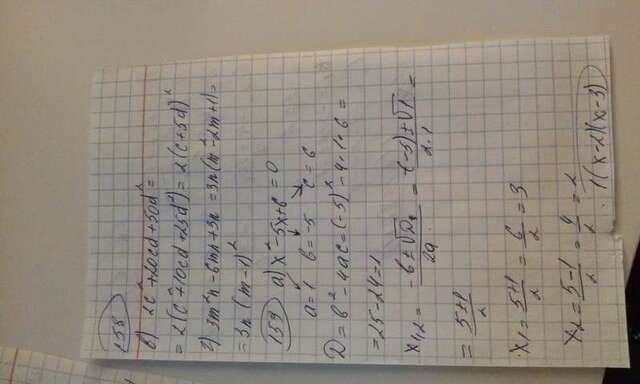 158
в) 2c²+20cd+50d²=
=2(c²+10cd+25d²)=2(c+5d)²
г) 3m²n-6mn+3n=3n(m²-2m+1)=
=3n(m-1)²
159 а) x²-5x+6=0
a=1 b=-5 c=6
D=b²-4ac=(-5)²-4·1·6=
=25-24=1
x1,2=(-b±√D)/2a=(-(-5)±√1)/2·1=
=(5±1)/2
x1=(5+1)/2=6/2=3
x2=(5-1)/2=4/2=2
1(x-2)(x-3)